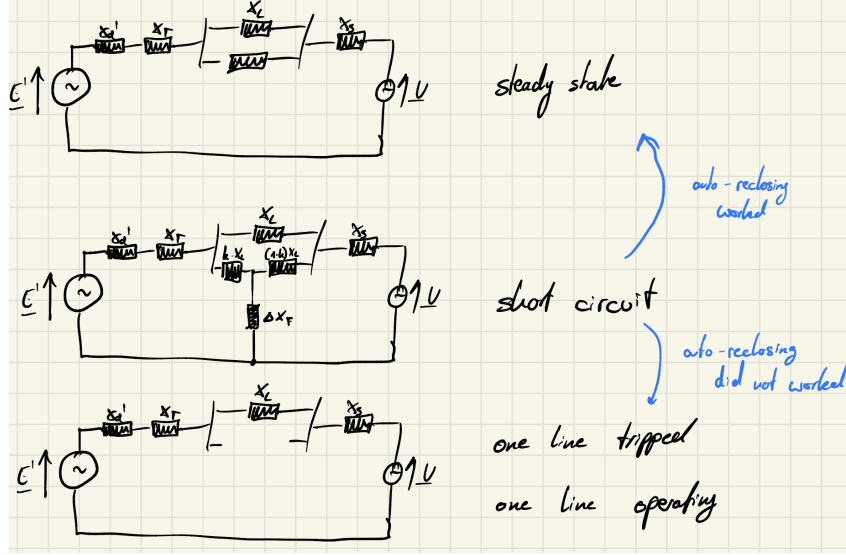 X_d' X_T X_L X_S
E' ~ U
steady state
auto-reclosing
worked
X_d' X_T X_L X_S
k·X_L (1-k)X_L
E' ~ U
ΔX_F
short circuit
auto-reclosing
did not worked
X_d' X_T X_L X_S
E' ~ U
one line tripped
one line operating